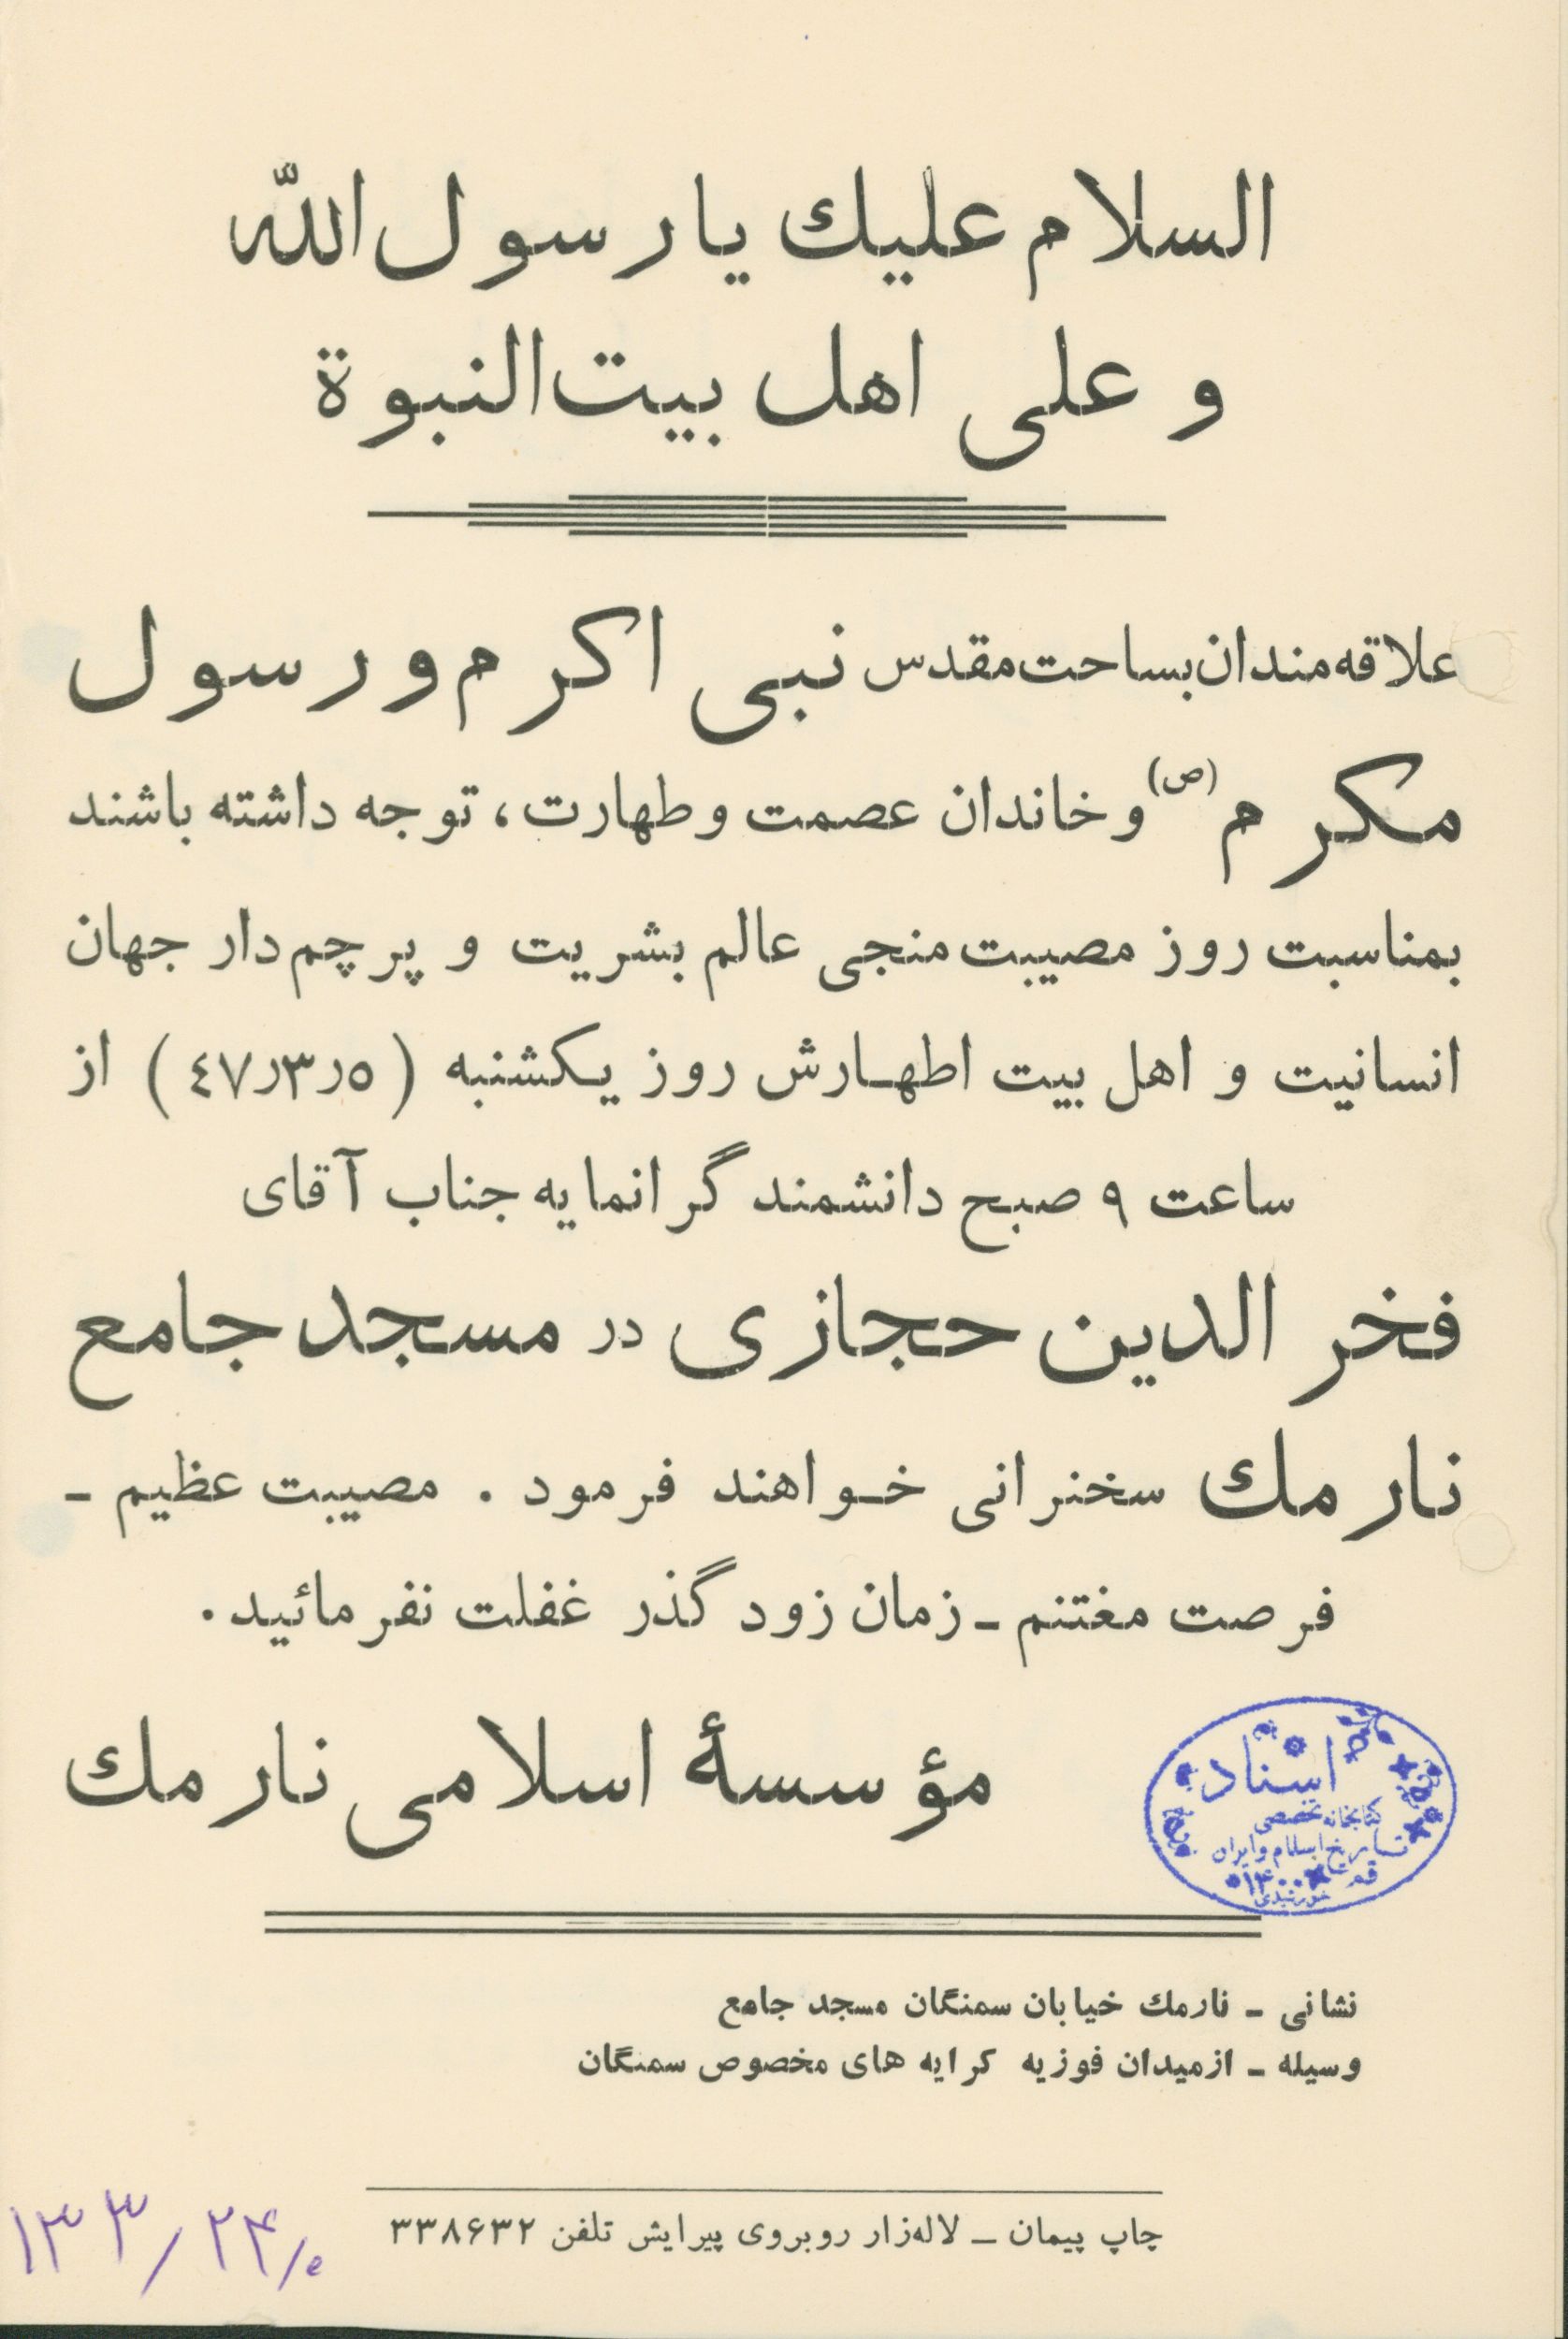 السلام عليك يا رسول الله
و على اهل بيت النبوة
علاقه‌مندان بساحت مقدس نبی اکرم و رسول
مکرم (ص) و خاندان عصمت و طهارت، توجه داشته باشند
بمناسبت روز مصیبت منجی عالم بشریت و پرچم‌دار جهان
انسانیت و اهل بیت اطهارش روز یکشنبه (٤٧ر٣ر٥) از
ساعت ۹ صبح دانشمند گرانمایه جناب آقای
فخرالدین حجازی در مسجد جامع
نارمك سخنرانی خواهند فرمود . مصیبت عظیم ـ
فرصت مغتنم ـ زمان زود گذر غفلت نفرمائید.
مؤسسهٔ اسلامی نارمك
اسناد
کتابخانه تخصصی
تاریخ اسلام و ایران
قم
نشانی ـ نارمك خیابان سمنگان مسجد جامع
وسیله ـ از میدان فوزیه کرایه های مخصوص سمنگان
چاپ پیمان ـ لاله‌زار روبروی پیرایش تلفن ۳۳۸۶۳۲